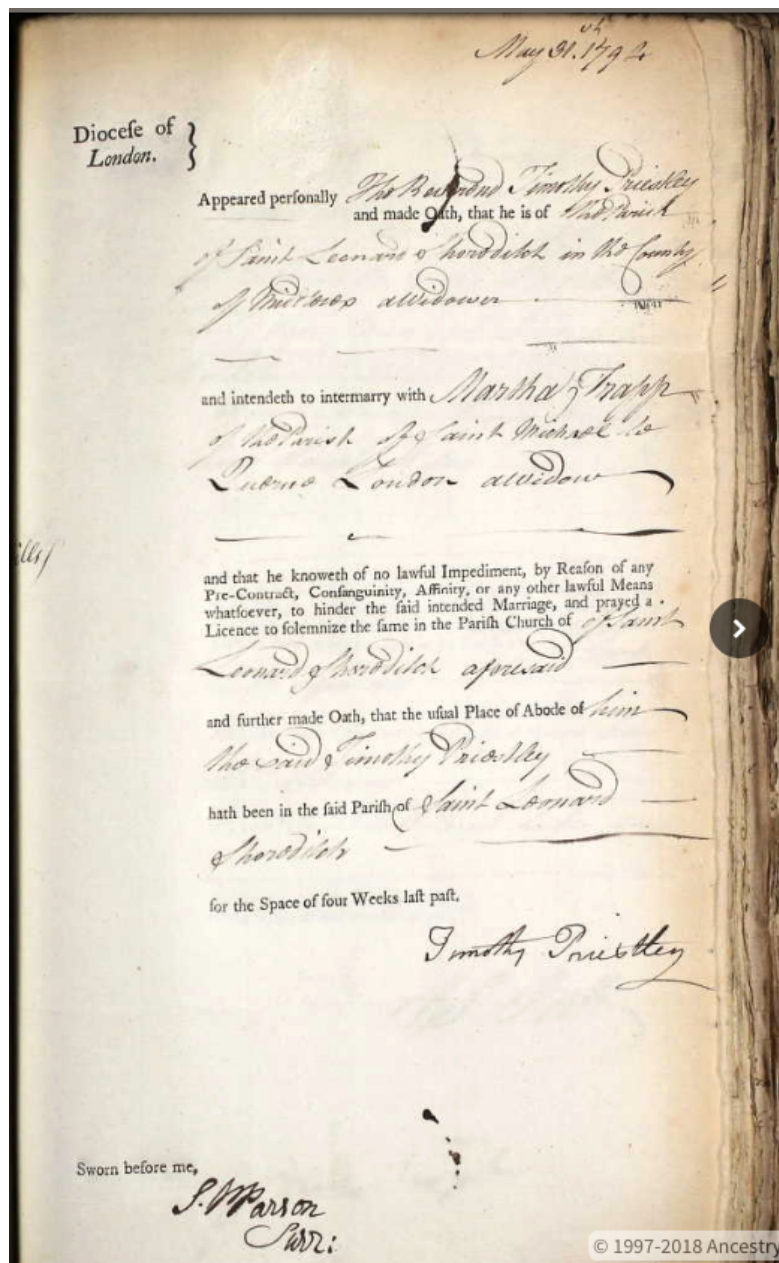 May 31.st 1792
Diocese of
London.
Appeared personally The Reverend Timothy Priestley
and made Oath, that he is of the Parish
of Saint Leonard Shoreditch in the County
of Middlesex a Widower
and intendeth to intermarry with Martha Trapp
of the Parish of Saint Michael le
Querne London a Widow
and that he knoweth of no lawful Impediment, by Reaſon of any
Pre-Contract, Conſanguinity, Affinity, or any other lawful Means
whatſoever, to hinder the ſaid intended Marriage, and prayed a
Licence to ſolemnize the ſame in the Pariſh Church of of Saint
Leonard Shoreditch aforesaid
and further made Oath, that the uſual Place of Abode of him
the said Timothy Priestley
hath been in the ſaid Pariſh of Saint Leonard
Shoreditch
for the Space of four Weeks laſt paſt.
Timothy Priestley
Sworn before me,
S. Parson
Surr:
© 1997-2018 Ancestry